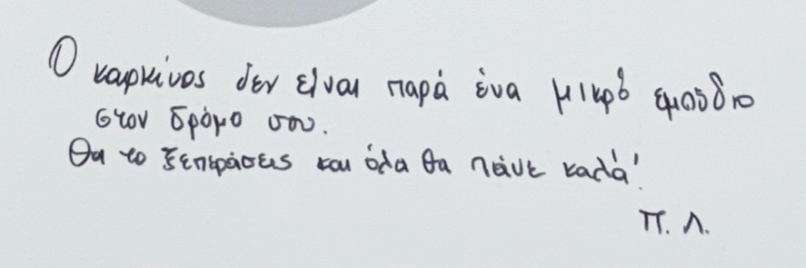 Ο καρκίνος δεν είναι παρά ένα μικρό εμπόδιο
στον δρόμο σου.
Θα το ξεπεράσεις και όλα θα πάνε καλά!
Π. Λ.